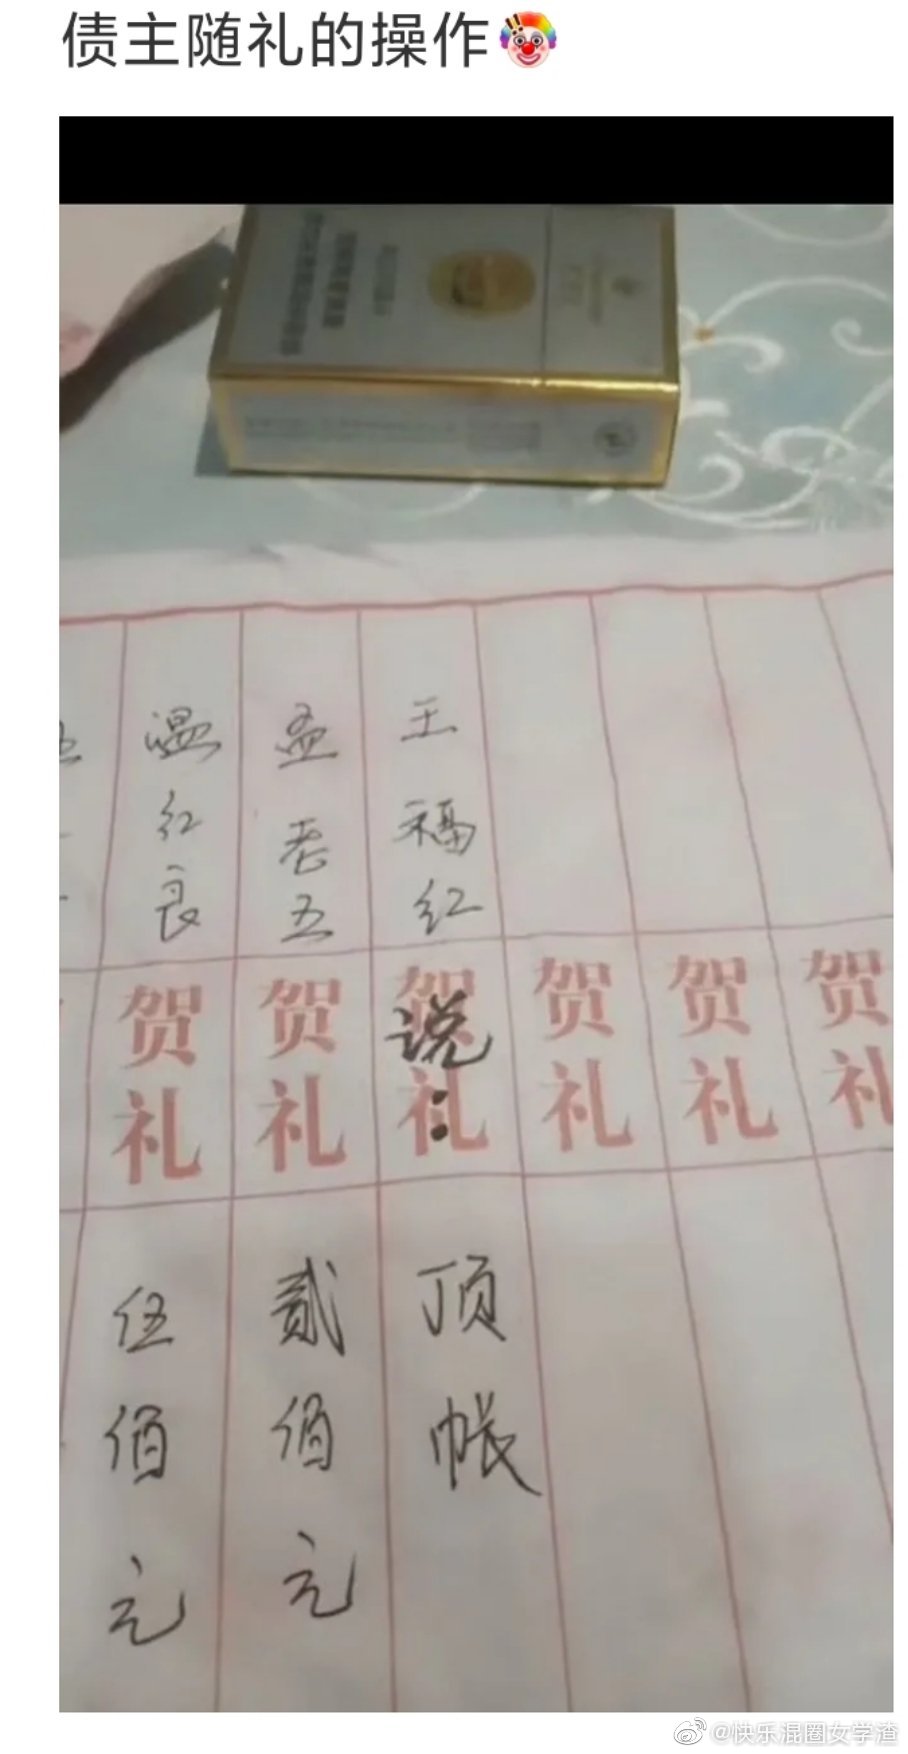 债主随礼的操作
温红良
贺礼
伍佰元
孟老五
贺礼
贰佰元
王福红
贺礼
说：
顶帐
贺礼
贺礼
贺礼
@快乐混圈女学渣